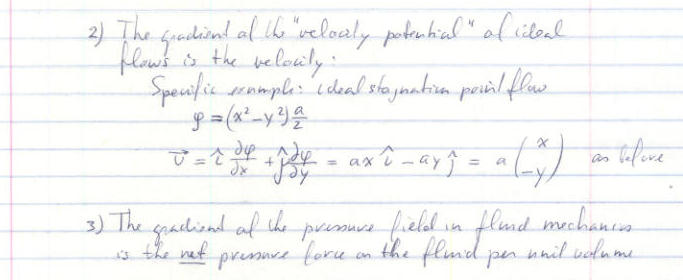 2) The gradient of the "velocity potential" of ideal
flows is the velocity:
Specific example: ideal stagnation point flow
φ = (x² - y²) a/2
v⃗ = î ∂φ/∂x + ĵ ∂φ/∂y = ax î - ay ĵ = a (x -y) as before
3) The gradient of the pressure field in fluid mechanics
is the net pressure force on the fluid per unit volume